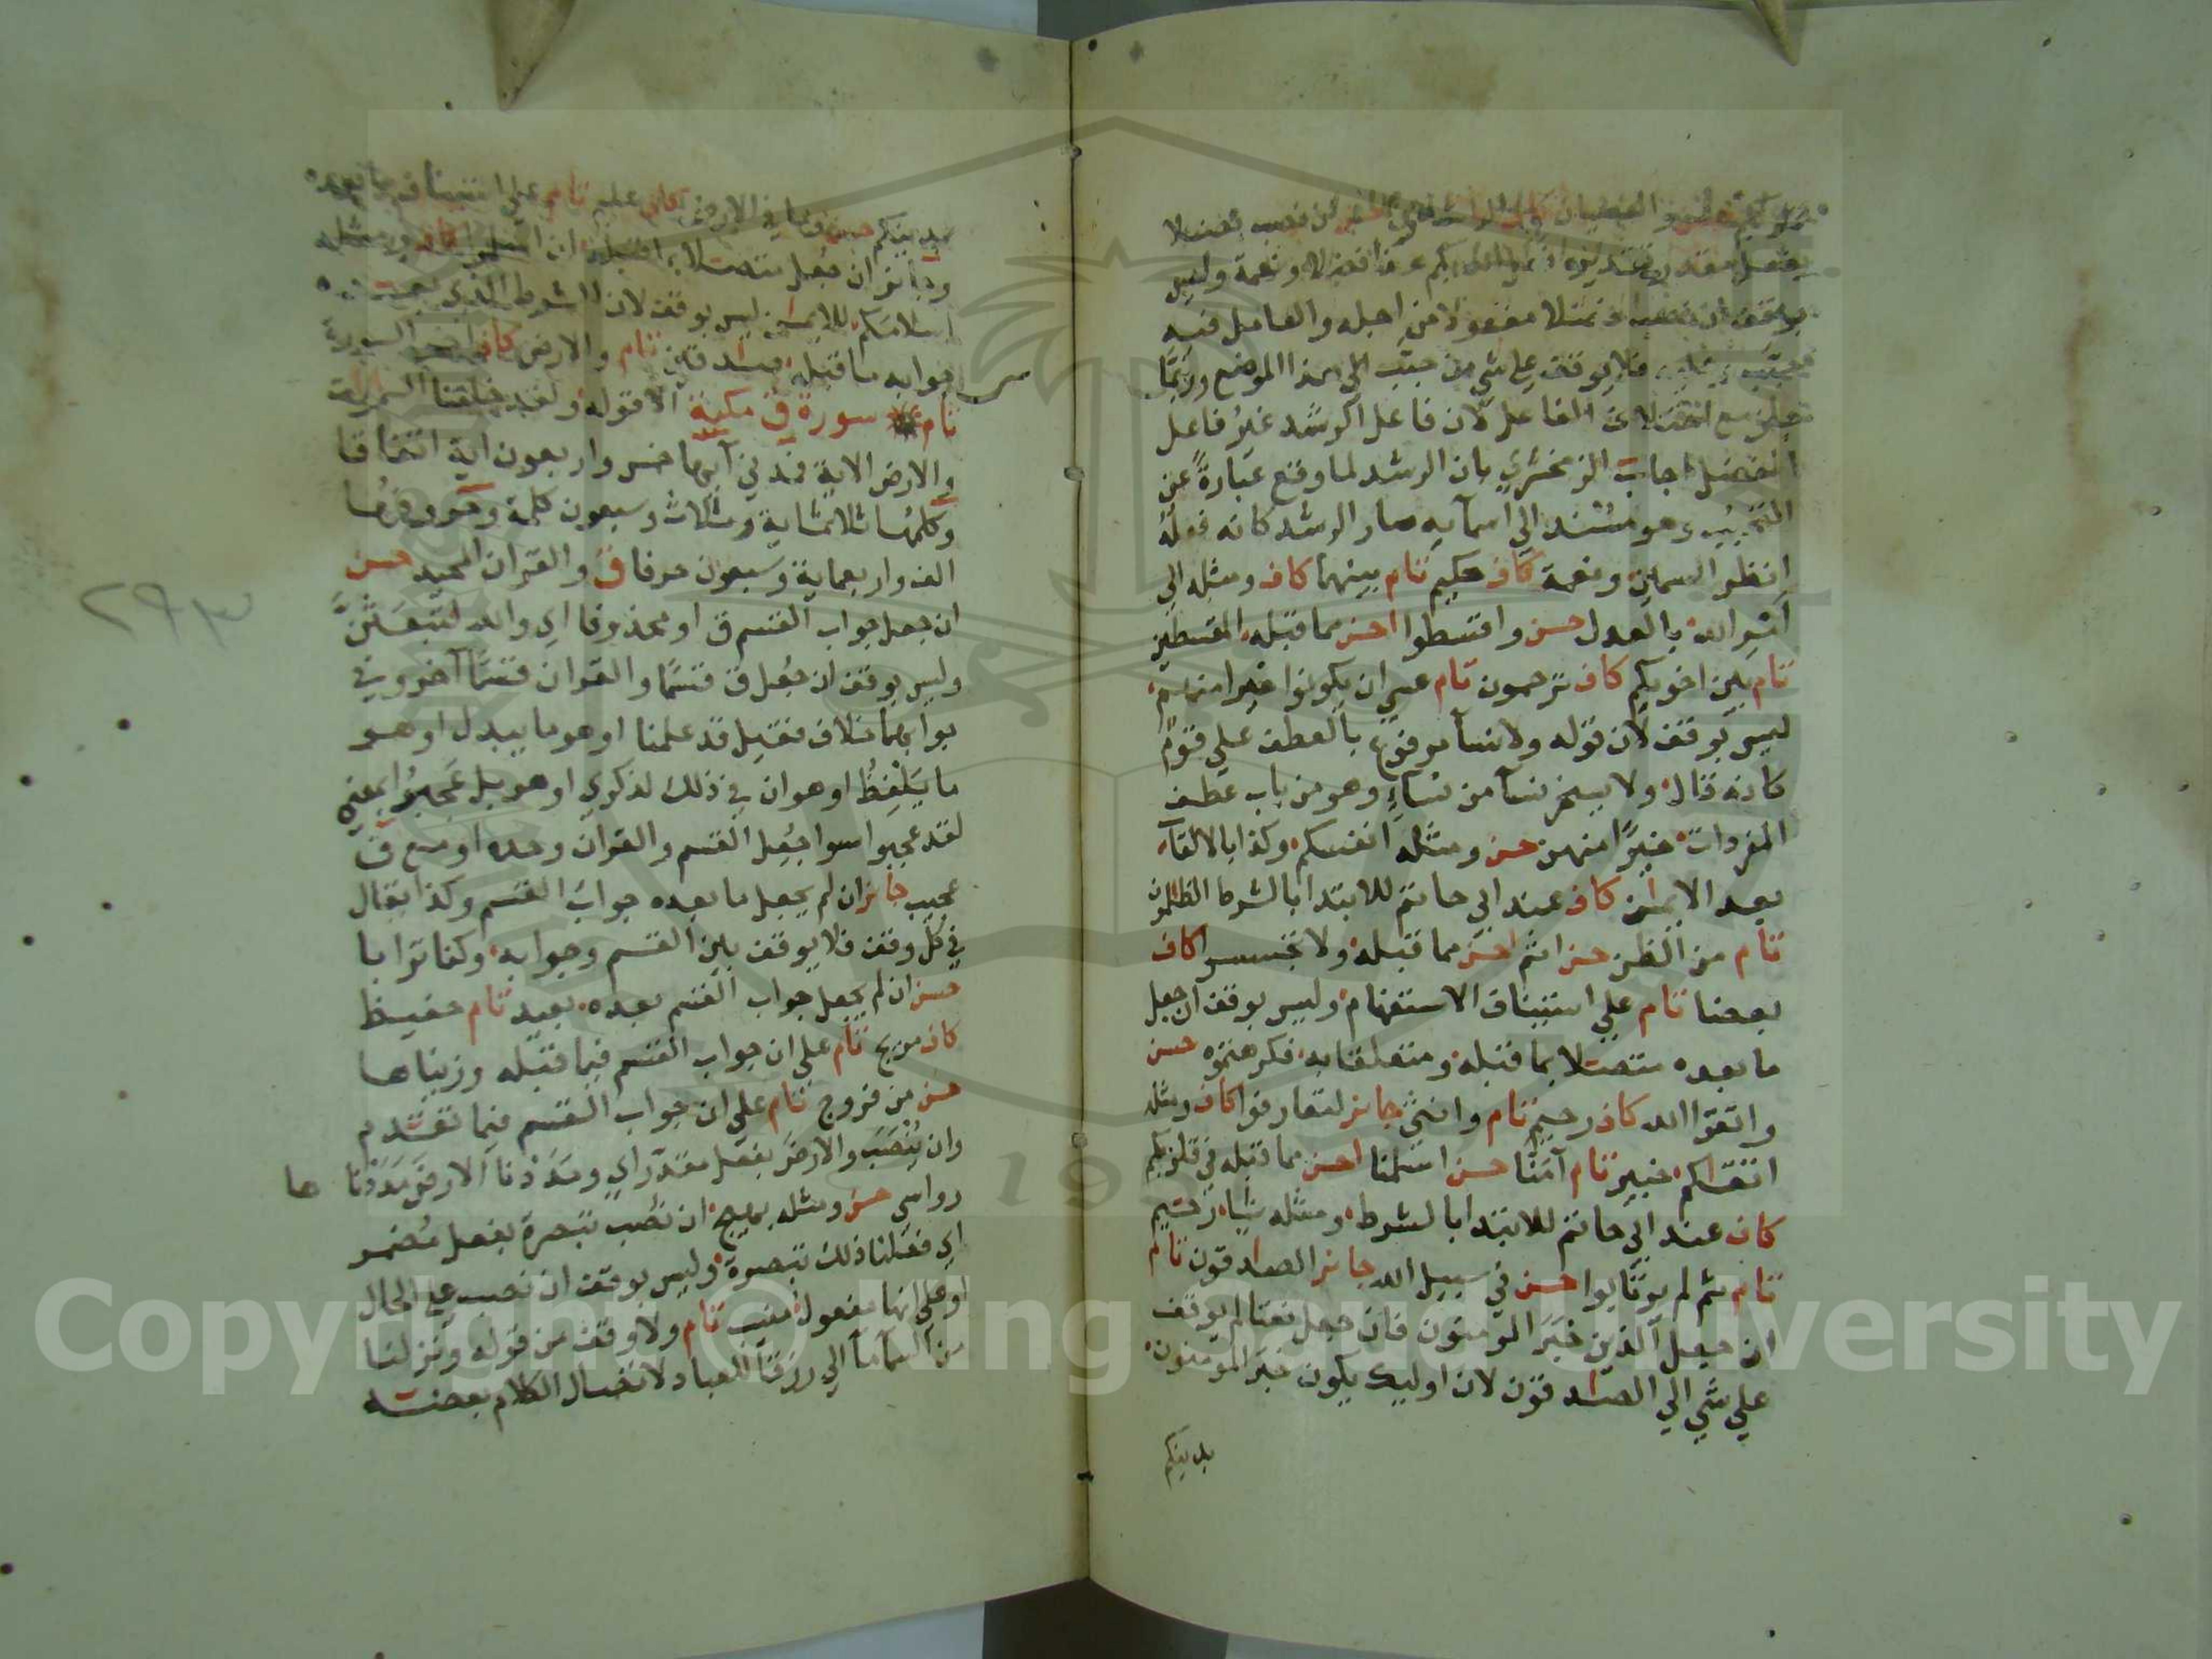 في قلوبكم حسن والعصيان كاف الراشدون حسن ان نصب فضلا
بفعل مقدر تقديره فضلا ونعمة وليس
بوقف ان نصب فضلا مفعولا من اجله والعامل فيه
حبب فلا يوقف على شي من حبب الى هذا الموضع وربما
مع اختلاف الفاعل لان فاعل الرشد غير فاعل
الفضل اجاب الزمخشري بان الرشد لما وقع عبارة عن
التحبيب وهو مسند الى اسمايه صار الرشد كانه فعله
انظر السمين ونعمة كاف حكيم تام بينهما كاف ومثله الى
امر الله بالعدل حسن واقسطوا احسن مما قبله المقسطين
تام بين اخويكم كاف ترحمون تام عسى ان يكونوا خيرا منهم
ليس بوقف لان قوله ولا نسآ مرفوع بالعطف على قوم
كانه قال ولا يسخر نسآ من نسآء وهو من باب عطف
المفردات خيرا منهن حسن ومثله انفسكم وكذا بالالقآب
بعد الايمان كاف عند ابي حاتم للابتدا بالشرط الظالمون
تام من الظن حسن اثم احسن مما قبله ولا تجسسوا كاف
بعضا تام على استيناف الاستفهام وليس بوقف ان جعل
ما بعده متصلا بما قبله ومتعلقا به فكرهتموه حسن
واتقوا الله كاف رحيم تام وانثى جايز لتعارفوا كاف ومثله
اتقاكم خبير تام آمنا حسن اسلمنا احسن مما قبله في قلوبكم
كاف عند ابي حاتم للابتدا بالشرط ومثله شيا رحيم
تام ثم لم يرتابوا حسن في سبيل الله جايز الصادقون تام
ان جعل الذين خبر المومنون فان جعل نعتا لم يوقف
على شي الى الصادقون لان اوليك يكون خبر المومنون
بدينكم
بدينكم حسن وما في الارض كاف عليم تام على استيناف ما بعده
وجايز ان جعل متصلا بما قبله ان اسلموا كاف ومثله
اسلامكم للايمان ليس بوقف لان الشرط الذي بعده
جوابه ما قبله صادقين تام والارض كاف اخر السورة
تام سورة ق مكية الا قوله ولقد خلقنا السموات
والارض الاية فمدني آيها خمس واربعون اية اتفاقا
وكلمها ثلاثماية وثلاث وسبعون كلمة وحروفها
الف واربعماية وسبعون حرفا ق والقران المجيد حسن
ان جعل جواب القسم ق او محذوفا اي والله لتبعثن
وليس بوقف ان جعل ق قسما والقران قسما آخر وفي
جوابهما خلاف فقيل قد علمنا او هو ما يبدل او هو
ما يلفظ او هو ان في ذلك لذكرى او هو بل عجبوا بمعنى
لقد عجبوا سوا جعل القسم والقران وحده او مع ق
عجيب جايز ان لم يجعل ما بعده جواب القسم وكذا يقال
في كل وقف فلا يوقف بين القسم وجوابه وكنا ترابا
حسن ان لم يجعل جواب القسم بعده بعيد تام حفيظ
كاف مريج تام على ان جواب القسم فيما قبله وزيناها
حسن من فروج تام على ان جواب القسم فيما تقدم
وان ينصب والارض بفعل مقدر اي ومددنا الارض مددنا ها
رواسي حسن ومثله بهيج ان نصب تبصرة بفعل مضمر
اي فعلنا ذلك تبصرة وليس بوقف ان نصب على الحال
او على انها مفعول منيب تام ولا وقف من قوله ونزلنا
من السمآ مآ الى رزقا للعباد لاتصال الكلام بعضه
٢٩٣